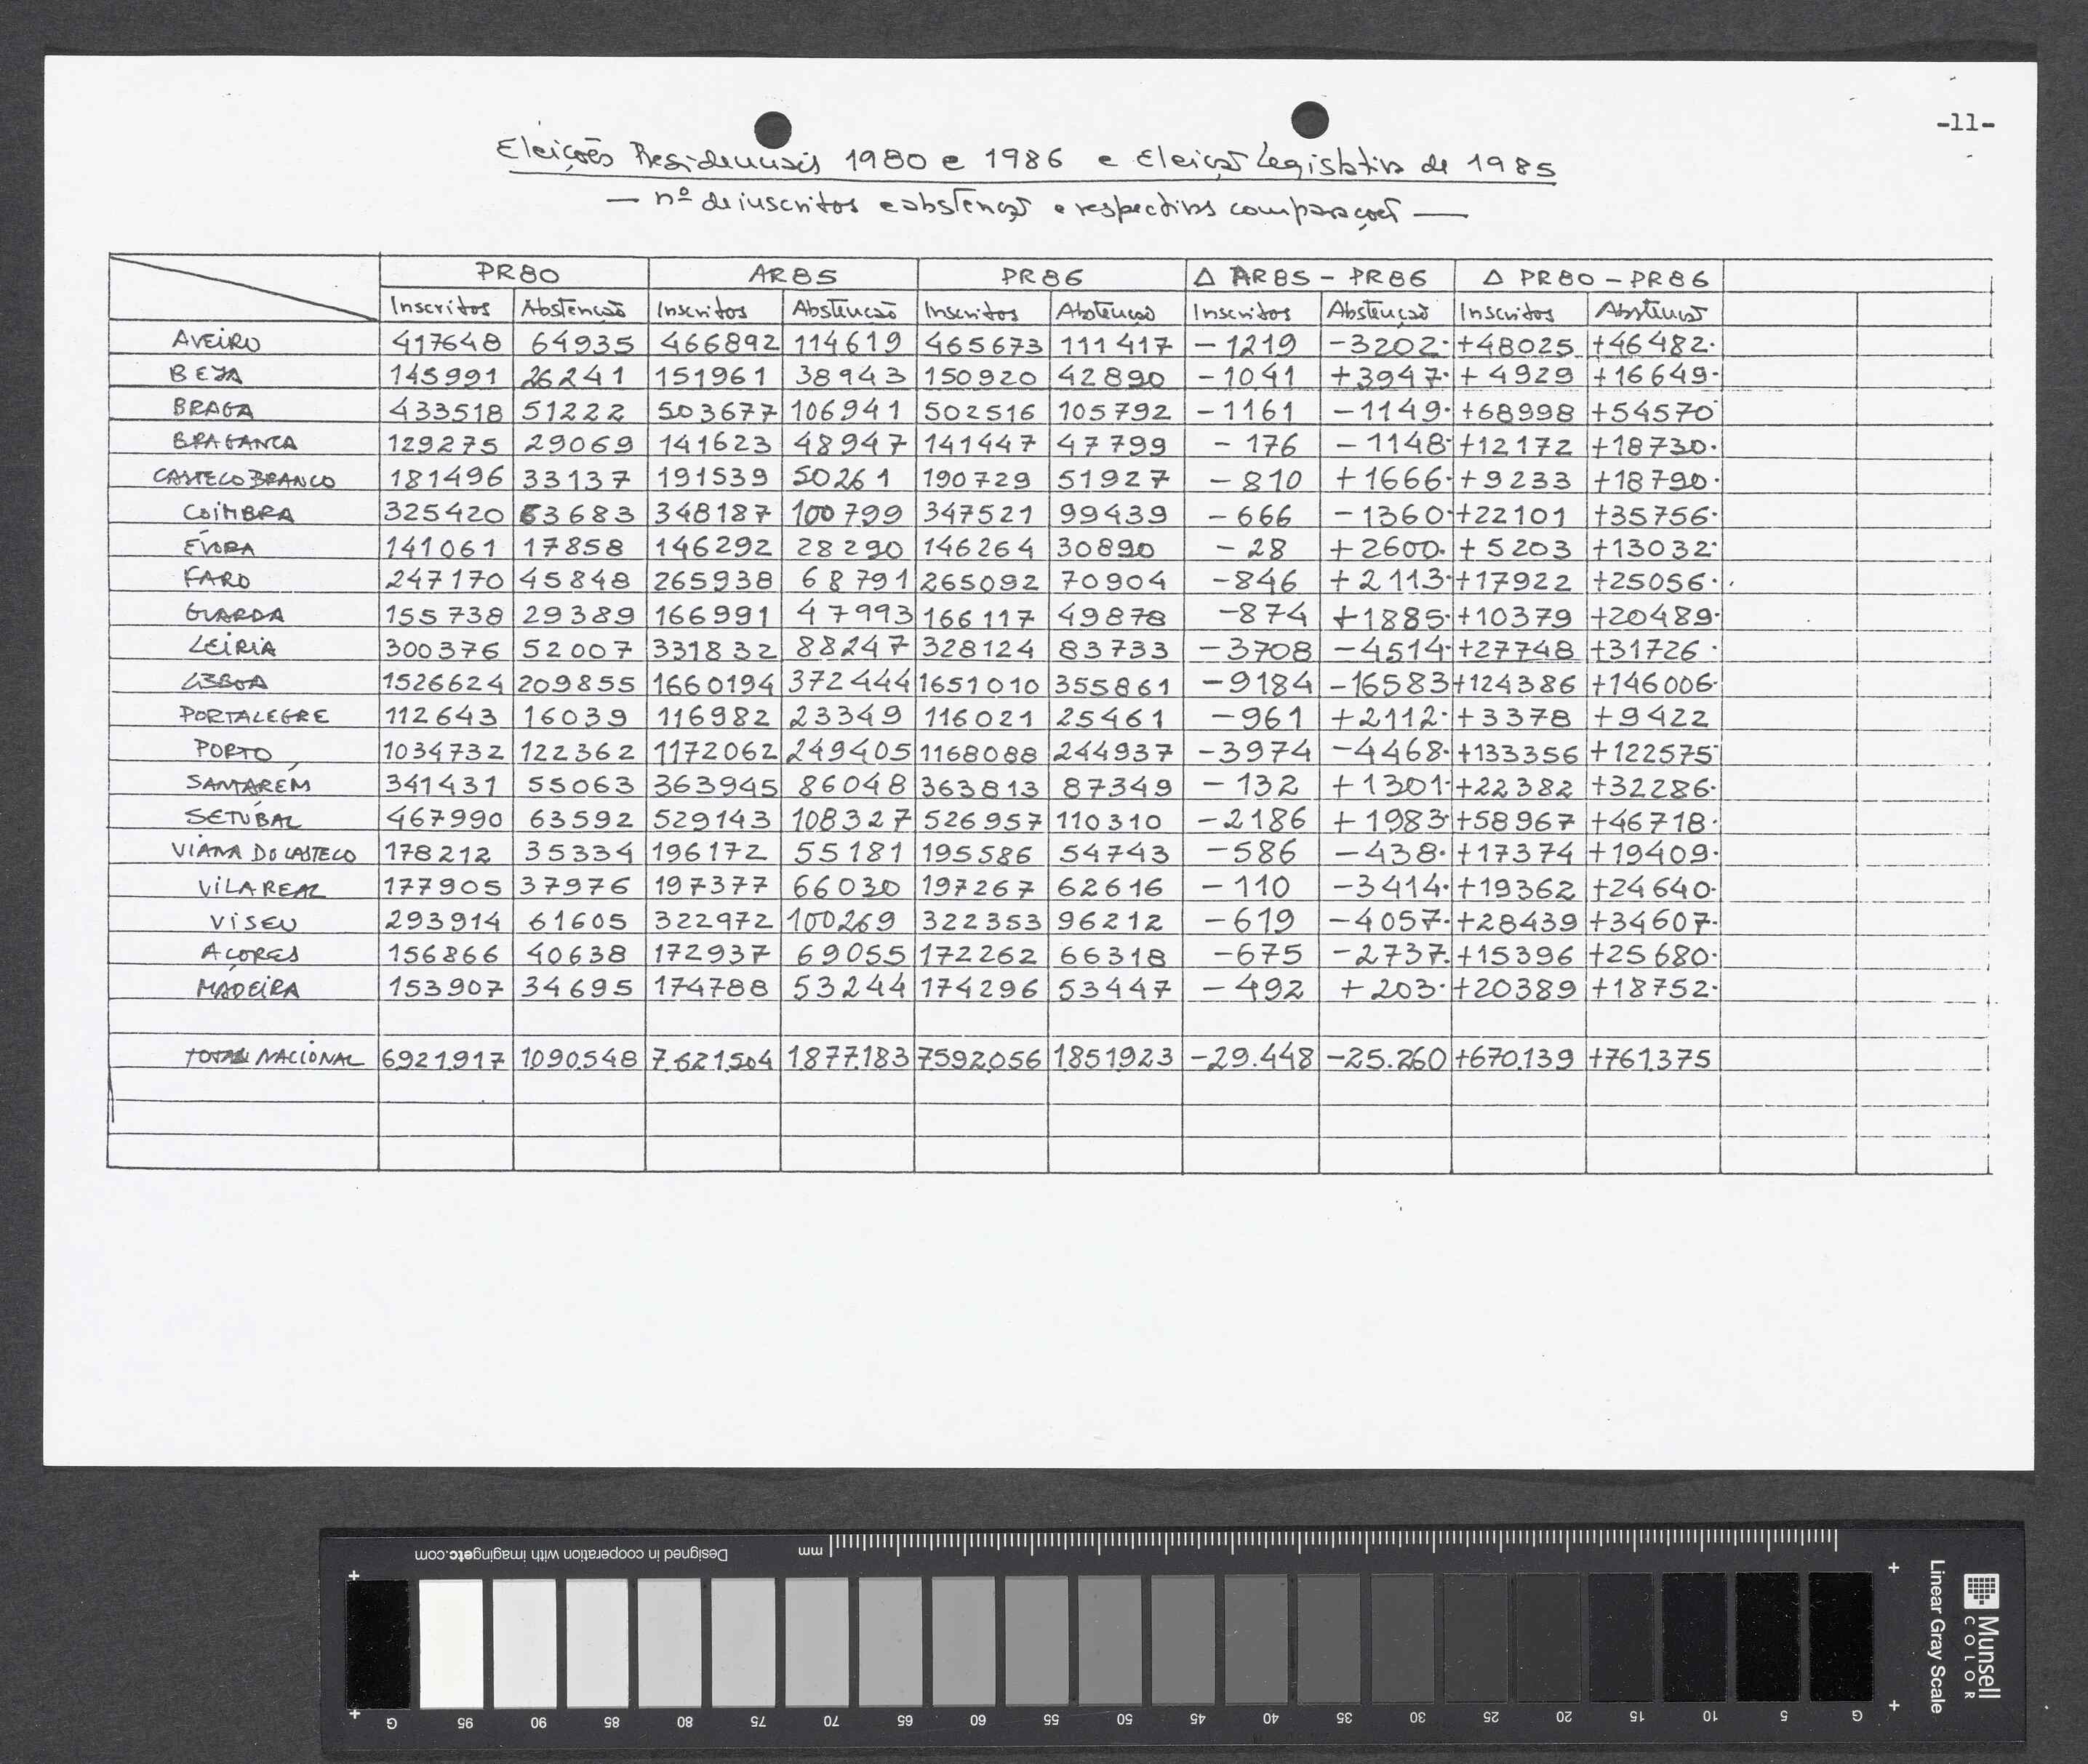 -11-
Eleições Presidenciais 1980 e 1986 e Eleição Legislativa de 1985
— nº de inscritos e abstenção e respectivas comparações —
PR80 AR85 PR86 Δ AR85 - PR86 Δ PR80 - PR86
Inscritos Abstenção Inscritos Abstenção Inscritos Abstenção Inscritos Abstenção Inscritos Abstenção
AVEIRO 417648 64935 466892 114619 465673 111417 -1219 -3202· +48025 +46482·
BEJA 145991 26241 151961 38943 150920 42890 -1041 +3947· +4929 +16649·
BRAGA 433518 51222 503677 106941 502516 105792 -1161 -1149· +68998 +54570·
BRAGANÇA 129275 29069 141623 48947 141447 47799 -176 -1148· +12172 +18730·
CASTELO BRANCO 181496 33137 191539 50261 190729 51927 -810 +1666· +9233 +18790·
COIMBRA 325420 63683 348187 100799 347521 99439 -666 -1360· +22101 +35756·
ÉVORA 141061 17858 146292 28290 146264 30890 -28 +2600· +5203 +13032·
FARO 247170 45848 265938 68791 265092 70904 -846 +2113· +17922 +25056·
GUARDA 155738 29389 166991 47993 166117 49878 -874 +1885· +10379 +20489·
LEIRIA 300376 52007 331832 88247 328124 83733 -3708 -4514· +27748 +31726·
LISBOA 1526624 209855 1660194 372444 1651010 355861 -9184 -16583 +124386 +146006·
PORTALEGRE 112643 16039 116982 23349 116021 25461 -961 +2112· +3378 +9422
PORTO 1034732 122362 1172062 249405 1168088 244937 -3974 -4468· +133356 +122575·
SANTARÉM 341431 55063 363945 86048 363813 87349 -132 +1301· +22382 +32286·
SETÚBAL 467990 63592 529143 108327 526957 110310 -2186 +1983· +58967 +46718·
VIANA DO CASTELO 178212 35334 196172 55181 195586 54743 -586 -438· +17374 +19409·
VILA REAL 177905 37976 197377 66030 197267 62616 -110 -3414· +19362 +24640·
VISEU 293914 61605 322972 100269 322353 96212 -619 -4057· +28439 +34607·
AÇORES 156866 40638 172937 69055 172262 66318 -675 -2737· +15396 +25680·
MADEIRA 153907 34695 174788 53244 174296 53447 -492 +203· +20389 +18752·
TOTAL NACIONAL 6921.917 1090.548 7.621.504 1.877.183 7592.056 1851923 -29.448 -25.260 +670.139 +761.375
Designed in cooperation with imagingetc.com
mm
G 95 90 85 80 75 70 65 60 55 50 45 40 35 30 25 20 15 10 5 G
Linear Gray Scale
Munsell
COLOR